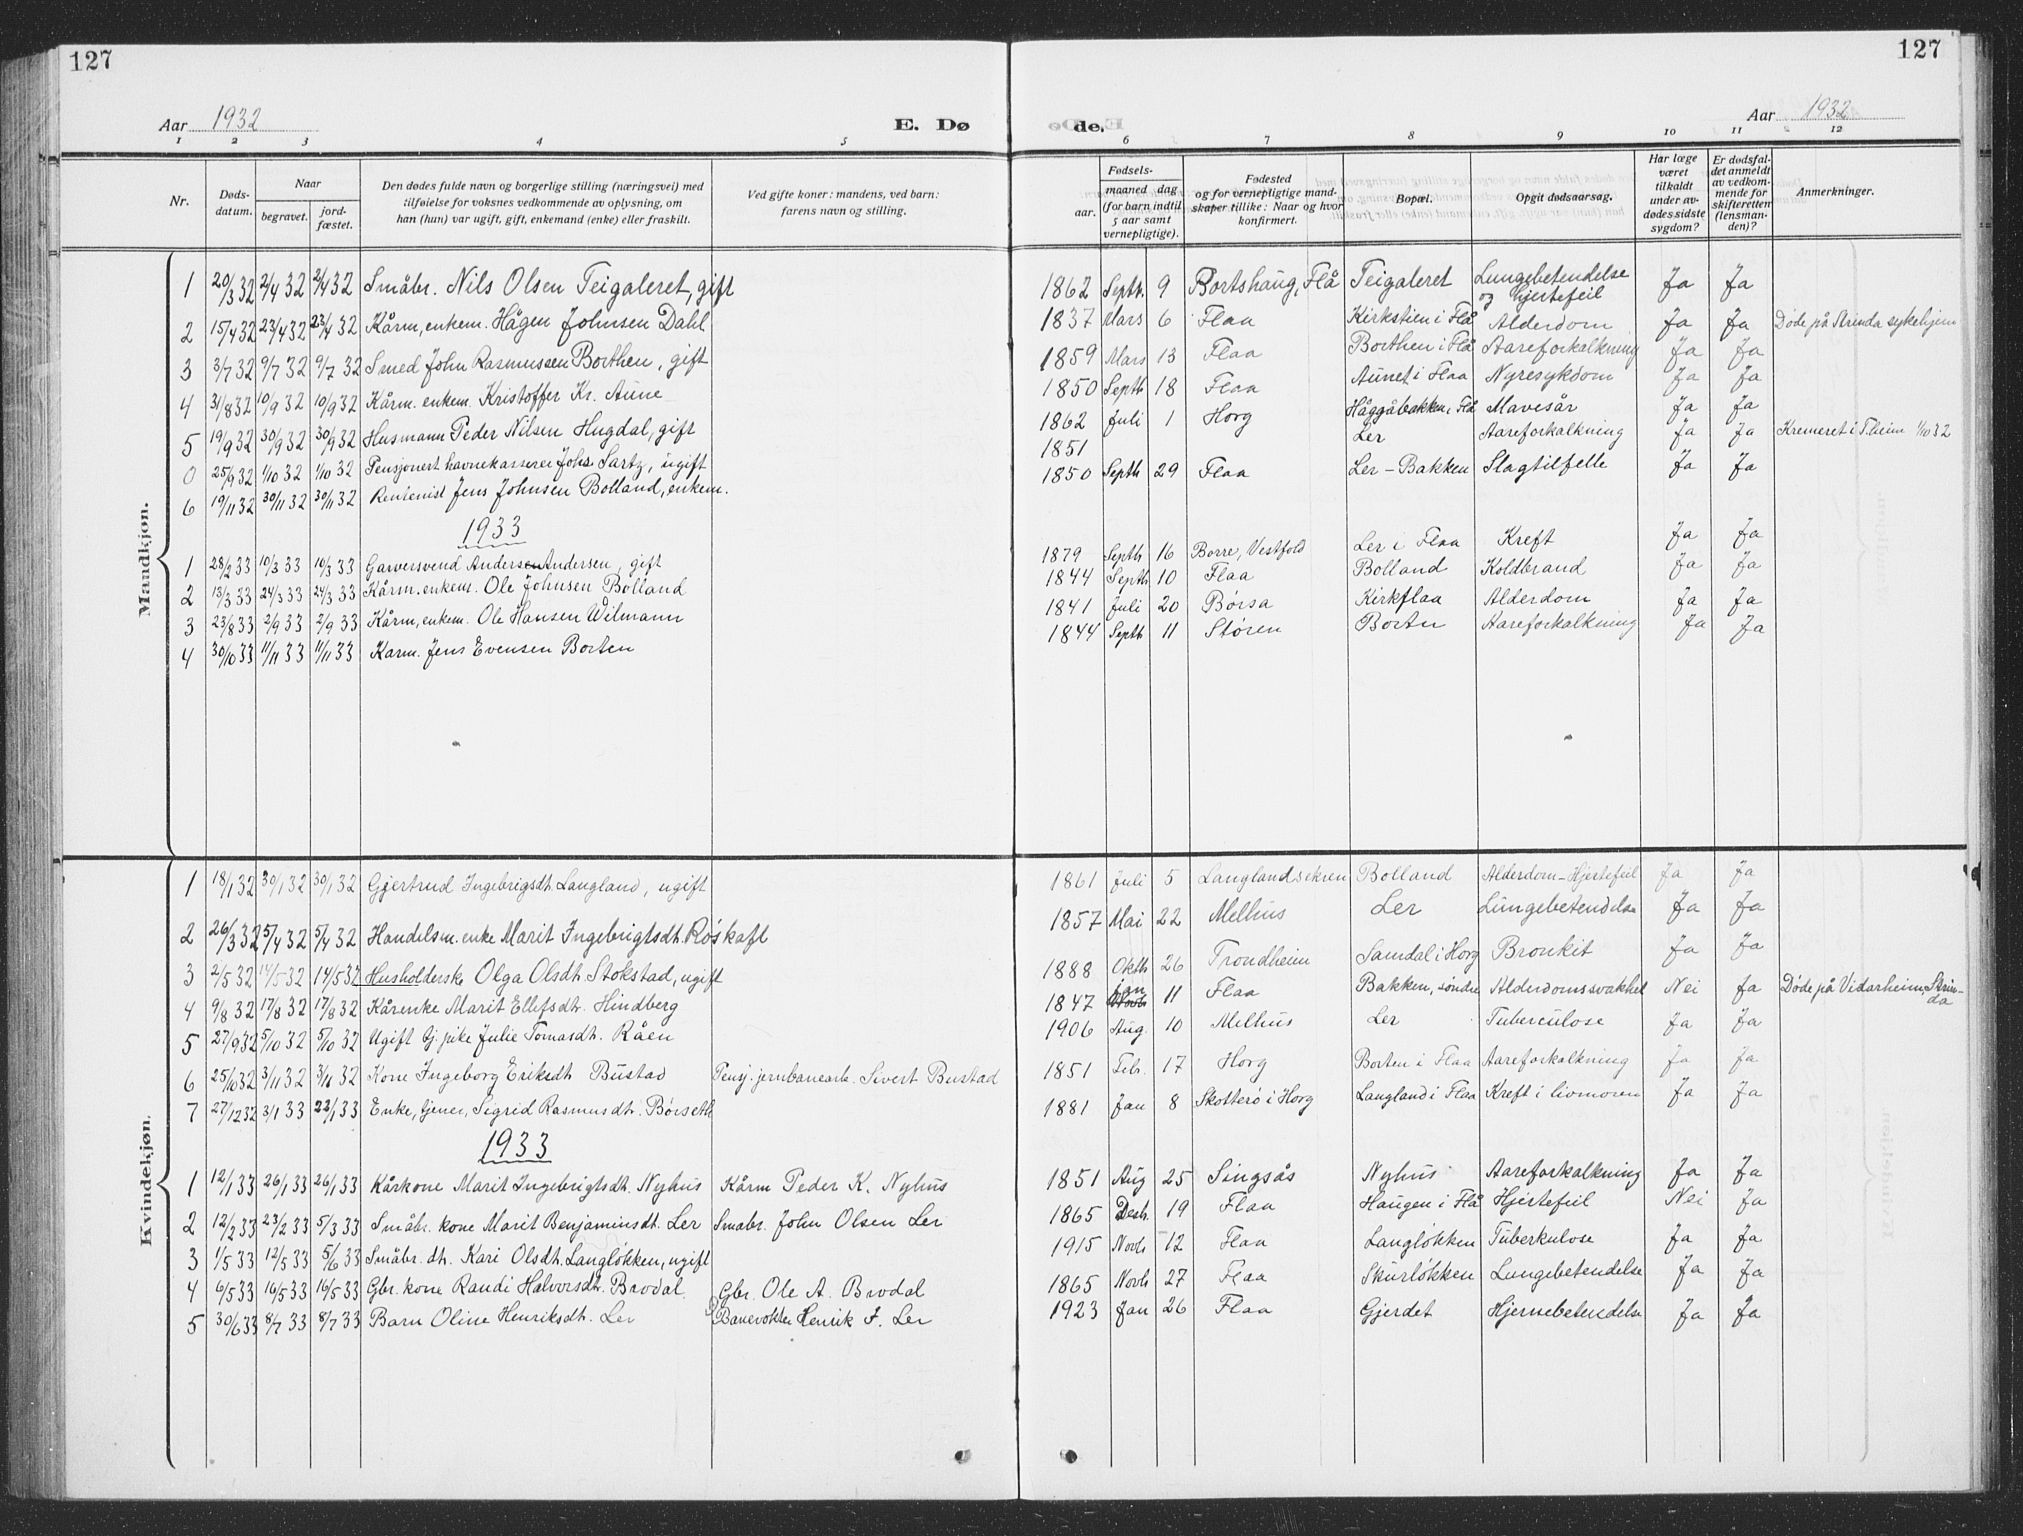 127
127
Aar 1932
E. Dø
de.
Aar 1932
1 2 3 4 5
6 7 8 9 10 11 12
Nr.
Døds-
datum.
Naar
begravet.
jord-
fæstet.
Den dødes fulde navn og borgerlige stilling (næringsvei) med
tilføielse for voksnes vedkommende av oplysning, om
han (hun) var ugift, gift, enkemand (enke) eller fraskilt.
Ved gifte koner: mandens, ved barn:
farens navn og stilling.
Fødsels-
aar.
maaned dag
(for barn indtil
5 aar samt
vernepligtige).
Fødested
og for vernepligtige mand-
skaper tillike: Naar og hvor
konfirmert.
Bopæl.
Opgit dødsaarsag.
Har læge
været
tilkaldt
under av-
dødes sidste
sygdom?
Er dødsfal-
det anmeldt
av vedkom-
mende for
skifteretten
(lensman-
den)?
Anmerkninger.
Mandkjøn.
1 20/3 32 2/4 32 2/4 32 Småbr. Nils Olsen Teigaleret, gift 1862 Septr. 9 Bortshaug, Flå Teigaleret Lungebetendelse og hjertefeil Ja Ja
2 15/4 32 23/4 32 23/4 32 Kårm, enkem. Hågen Johnsen Dahl 1837 Mars 6 Flaa Kirkstien i Flå Alderdom Ja Ja Døde på Strinda sykehjem
3 3/7 32 9/7 32 9/7 32 Smed John Rasmussen Borthen, gift 1859 Mars 13 Flaa Borthen i Flå Aareforkalkning Ja Ja
4 31/8 32 10/9 32 10/9 32 Kårm. enkem. Kristoffer Kr. Aune 1850 Septb 18 Flaa Aunet i Flaa Nyresykdom Ja Ja
5 19/9 32 30/9 32 30/9 32 Husmann Peder Nilsen Hugdal, gift 1862 Juli 1 Horg Håggåbakken i Flå Mavesår Ja Ja
0 25/9 32 1/10 32 1/10 32 Pensjonert havnekasserer Johs Sartz, ugift 1851 Ler Aareforkalkning Ja Ja Kremeret i T.heim 1/10 32
6 19/11 32 30/11 32 30/11 32 Rentenist Jens Johnsen Bolland, enkem. 1850 Septb 29 Flaa Ler - Bakken Slagtilfelle Ja Ja
1933
1 28/2 33 10/3 33 10/3 33 Garversvend Andersen Andersen, gift 1879 Septb 16 Borre, Vestfold Ler i Flaa Kreft Ja Ja
2 13/3 33 24/3 33 24/3 33 Kårm. enkem. Ole Johnsen Bolland 1844 Septb 10 Flaa Bolland Koldbrand Ja Ja
3 23/8 33 2/9 33 2/9 33 Kårm, enkem. Ole Hansen Wilmann 1841 Juli 20 Børsa Kirkflaa Alderdom Ja Ja
4 30/10 33 11/11 33 11/11 33 Karm. Jens Evensen Borten 1844 Septb 11 Støren Borten Aareforkalkning Ja Ja
Kvindekjøn.
1 18/1 32 30/1 32 30/1 32 Gjertrud Ingebrigsdt. Langland, ugift 1861 Juli 5 Langlandsekren Bolland Alderdom-Hjertefeil Ja Ja
2 26/3 32 5/4 32 5/4 32 Handelsm. enke Marit Ingebrigtsdt. Røskaft 1857 Mai 22 Melhus Ler Lungebetendelse Ja Ja
3 2/5 32 14/5 32 14/5 32 Husholderske Olga Olsdt. Stokstad, ugift 1888 Oktb 26 Trondheim Samdal i Horg Bronkit Ja Ja
4 9/8 32 17/8 32 17/8 32 Kårenke Marit Ellefsdtr. Hindberg 1847 Jan 11 Flaa Bakken, søndre Alderdomssvakhet Nei Ja Døde på Vidarheim, Strinda
5 27/9 32 5/10 32 5/10 32 Ugift Gj. pike Julie Tomasdt. Råen 1906 Aug. 10 Melhus Ler Tuberculose Ja Ja
6 25/10 32 3/11 32 3/11 32 Kone Ingeborg Eriksdt Bustad Pensj. jernbanearb. Sivert Bustad 1851 Febr. 17 Horg Borten i Flaa Aareforkalkning Ja Ja
7 27/12 32 3/1 33 22/1 33 Enke, tjener, Sigrid Rasmusdt. Børseth 1881 Jan 8 Skotterø i Horg Langland i Flaa Kreft i livmoren Ja Ja
1933
1 12/1 33 26/1 33 26/1 33 Kårkone Marit Ingebrigtsdt. Nyhus Kårm Peder K. Nyhus 1851 Aug 25 Singsås Nyhus Aareforkalkning Ja Ja
2 12/2 33 23/2 33 5/3 33 Småbr. kone Marit Benjaminsdt. Ler Småbr. John Olsen Ler 1865 Desb. 19 Flaa Haugen i Flå Hjertefeil Nei Ja
3 1/5 33 12/5 33 5/6 33 Småbr. dt. Kari Olsdt. Langløkken, ugift 1915 Novb 12 Flaa Langløkken Tuberkulose Ja Ja
4 6/5 33 16/5 33 16/5 33 Gbr. kone Randi Halvorsdt. Brodal Gbr. Ole A. Brodal 1865 Novb 27 Flaa Skurløkken Lungebetendelse Ja Ja
5 30/6 33 8/7 33 8/7 33 Barn Oline Henriksdt. Ler Banevokter Henrik J. Ler 1923 Jan 26 Flaa Gjerdet Hjernebetendelse Ja Ja